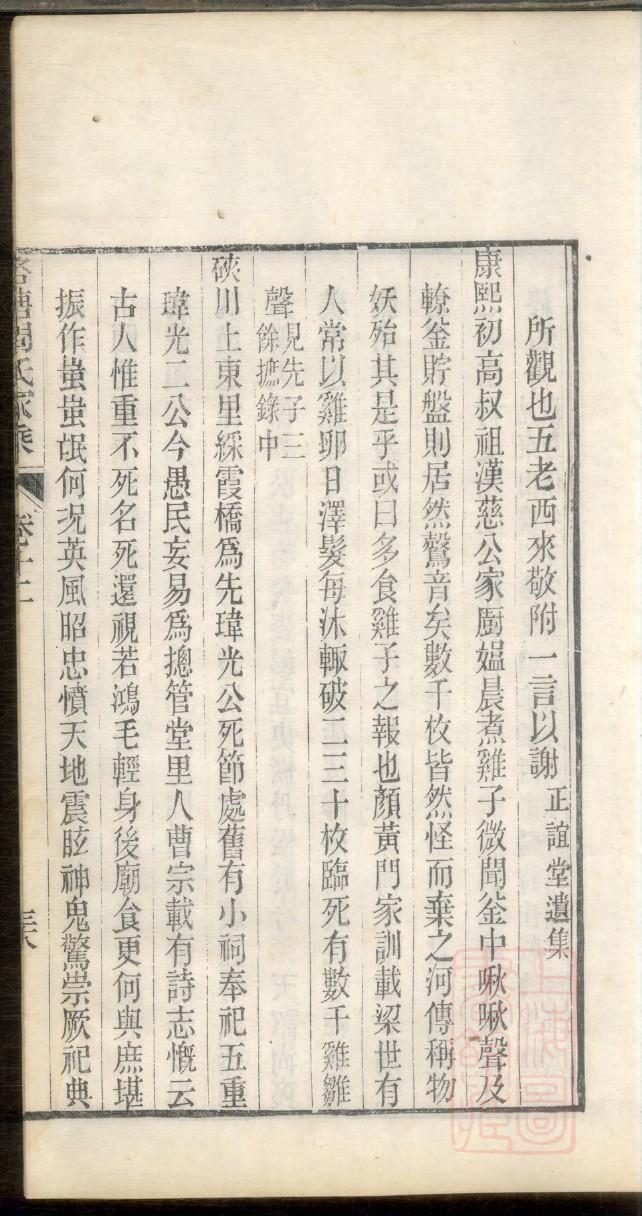 所觀也五老西來敬附一言以謝正誼堂遺集
康熙初高叔祖漢慈公家厨媪晨煮雞子微聞釜中啾啾聲及
轑釜貯盤則居然鷇音矣數千枚皆然怪而棄之河傳稱物
妖殆其是乎或曰多食雞子之報也顏黃門家訓載梁世有
人常以雞卵日澤髮每沐輙破二三十枚臨死有數千雞雛
聲見先子三
餘摭錄中
硤川上東里綵霞橋爲先瑋光公死節處舊有小祠奉祀五重
瑋光二公今愚民妄易爲摠管堂里人曹宗載有詩志慨云
古人惟重不死名死還視若鴻毛輕身後廟食更何與庶堪
振作蚩蚩氓何況英風昭忠憤天地震眩神鬼驚崇厥祀典
洛塘周氏家乘
卷十二
三八